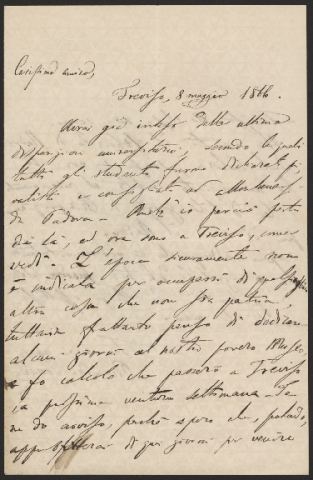 Carissimo amico,
Treviso, 8 maggio 1866.
Avrai già inteso delle ultime
disposizioni universitarie, secondo le quali
tutti gli studenti furono dichiarati
e consegnati ad
di Padova – Anch'io perciò
di là, ed ora sono a Treviso, come
vedi – L'epoca sicuramente non
è indicata per occuparsi di qualsiasi
altra cosa che non sia patria;
tuttavia frattanto penso di dedicare
alcuni giorni al nostro povero Museo,
e fo calcolo che passerò a Treviso
la prossima ventura settimana – Te
ne do avviso, perché spero che, potendo,
approfitterai di que' giorni per venire